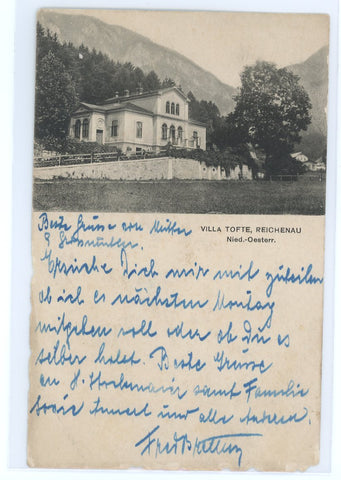 VILLA TOFTE, REICHENAU
Nied.-Oesterr.
Beste Grüsse von Mutter
& Grossmutter.
Dich mir mit zuteilen
ob ich es nächsten Montag
mitgeben soll oder ob Du es
selber holst. Beste Grüsse
an H. samt Familie
sowie und alle Anderen.
Fred